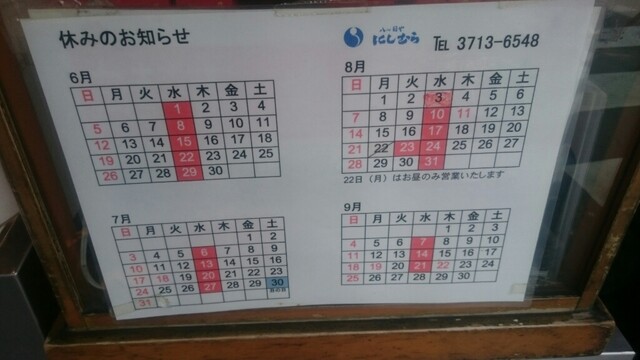 休みのお知らせ
にしむら TEL 3713-6548
6月
日 月 火 水 木 金 土
1 2 3 4
5 6 7 8 9 10 11
12 13 14 15 16 17 18
19 20 21 22 23 24 25
26 27 28 29 30
8月
日 月 火 水 木 金 土
1 2 3 4 5 6
7 8 9 10 11 12 13
14 15 16 17 18 19 20
21 22 23 24 25 26 27
28 29 30 31
22日(月)はお昼のみ営業いたします
7月
日 月 火 水 木 金 土
1 2
3 4 5 6 7 8 9
10 11 12 13 14 15 16
17 18 19 20 21 22 23
24 25 26 27 28 29 30
31
9月
日 月 火 水 木 金 土
1 2 3
4 5 6 7 8 9 10
11 12 13 14 15 16 17
18 19 20 21 22 23 24
25 26 27 28 29 30